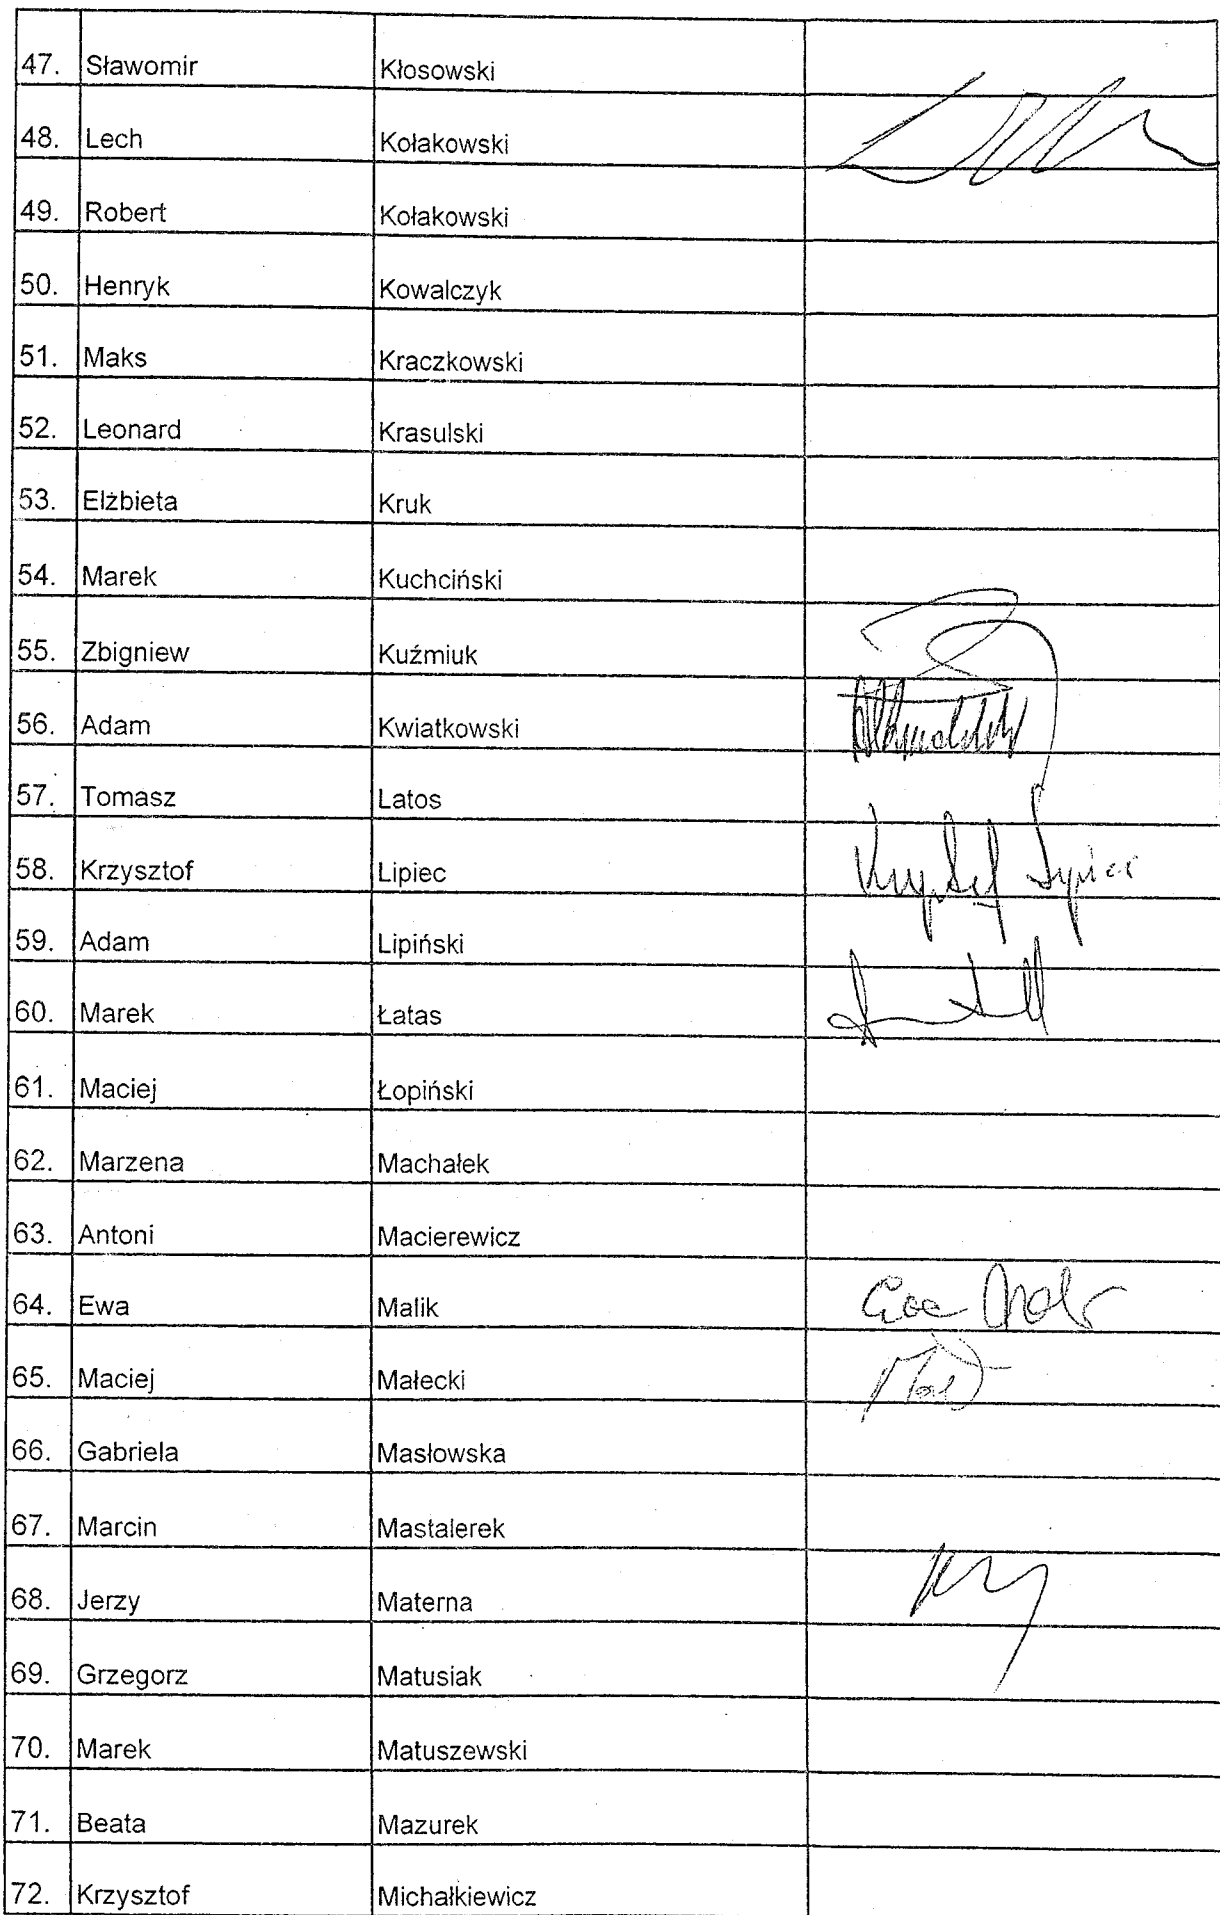 47. Sławomir Kłosowski
48. Lech Kołakowski
49. Robert Kołakowski
50. Henryk Kowalczyk
51. Maks Kraczkowski
52. Leonard Krasulski
53. Elżbieta Kruk
54. Marek Kuchciński
55. Zbigniew Kuźmiuk
56. Adam Kwiatkowski
57. Tomasz Latos
58. Krzysztof Lipiec
59. Adam Lipiński
60. Marek Łatas
61. Maciej Łopiński
62. Marzena Machałek
63. Antoni Macierewicz
64. Ewa Malik
65. Maciej Małecki
66. Gabriela Masłowska
67. Marcin Mastalerek
68. Jerzy Materna
69. Grzegorz Matusiak
70. Marek Matuszewski
71. Beata Mazurek
72. Krzysztof Michałkiewicz